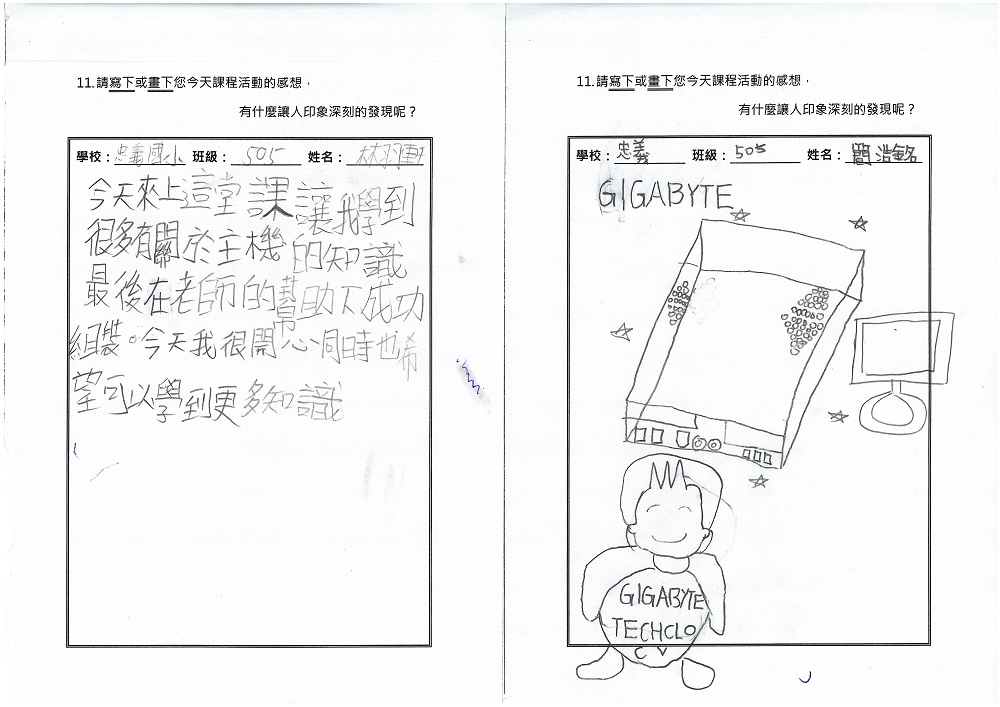 11.請寫下或畫下您今天課程活動的感想，
有什麼讓人印象深刻的發現呢？
學校：忠義國小 班級：505 姓名：林羽軒
今天來上這堂課讓我學到
很多有關於主機的知識
最後在老師的幫助下成功
組裝。今天我很開心同時也希
望可以學到更多知識
11.請寫下或畫下您今天課程活動的感想，
有什麼讓人印象深刻的發現呢？
學校：忠義 班級：505 姓名：簡浩銘
GIGABYTE
GIGABYTE
TECHCLO
C V